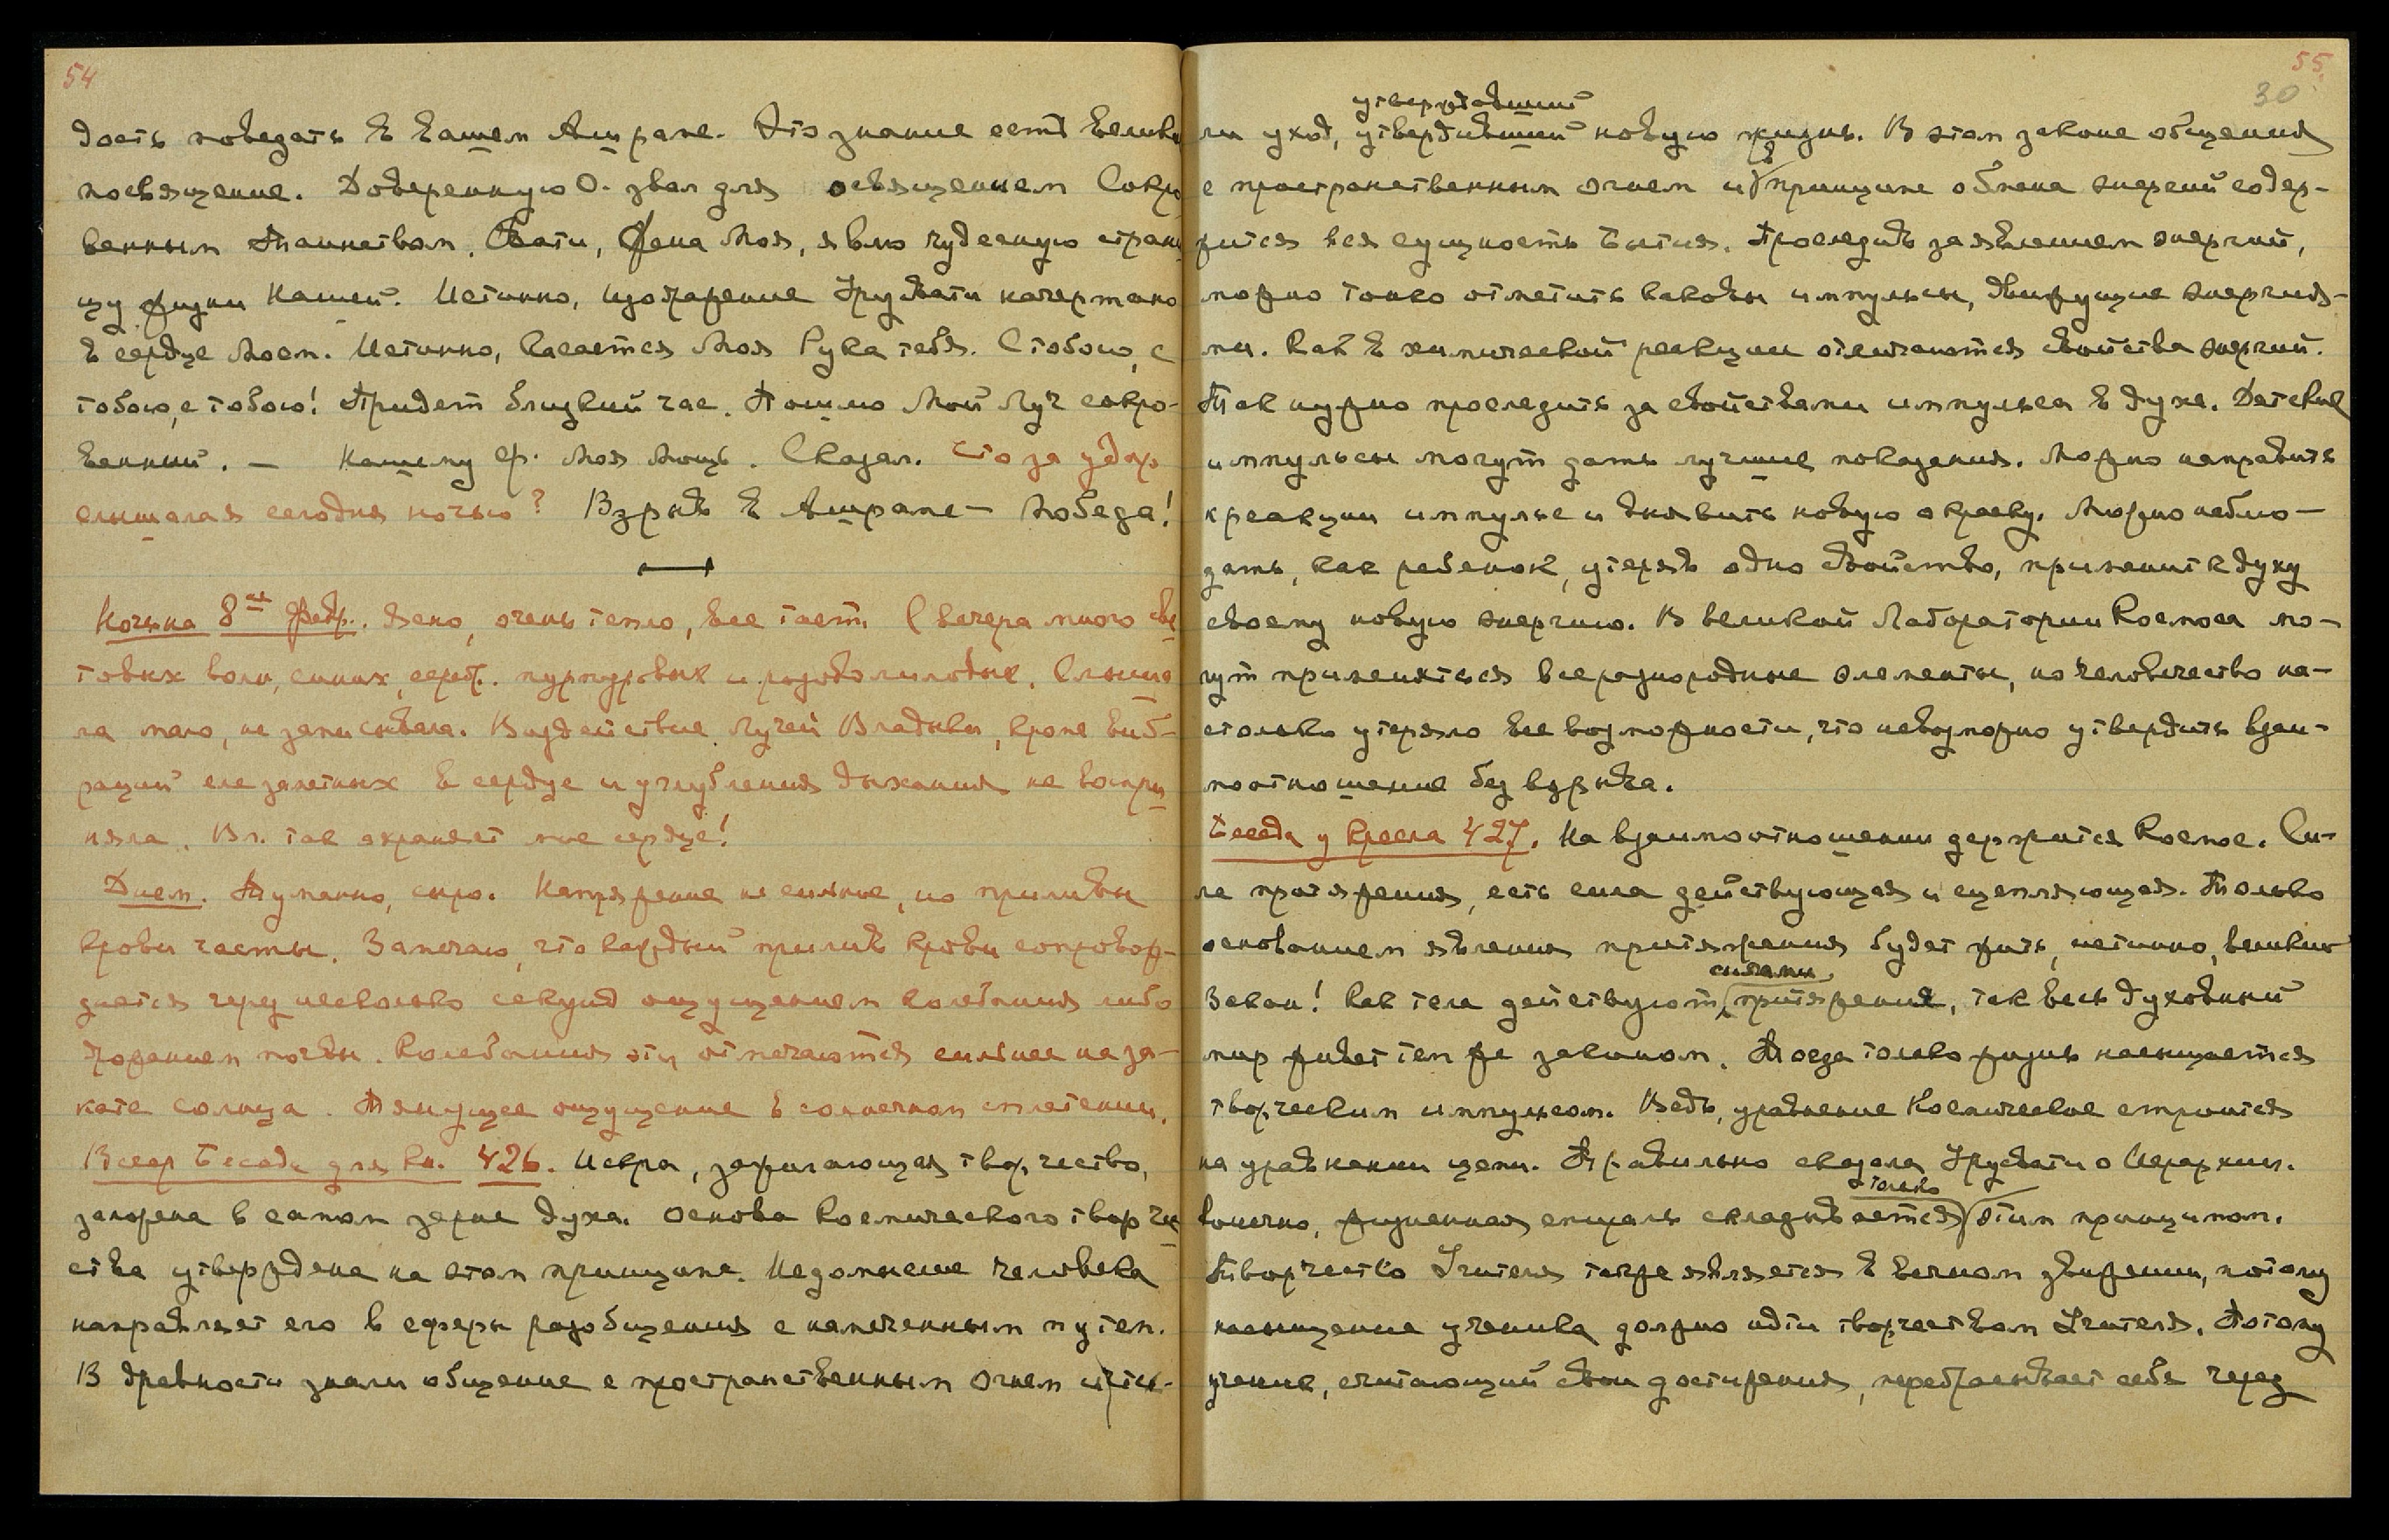 54
дость поведать в вашем Ашраме. Это знание есть велико
посвящение. Доверенную О. звал для освященнем Сокро
венным Таинствам. Свати, Жена Моя, явлю чудесную страни
цу жизни Нашей. Истинно, Изображение Урусвати начертано
в сердце Моем. Истинно, касается Моя Рука тебя. С тобою, с
тобою, с тобою! Придет близкий час. Пошлю Мой Луч сокро-
венный. — Нашему ср. Моя Мощь. Сказал. Что за удар
слышала я сегодня ночью? Взрыв в Ашраме — победа!
Ночь на 8ое Февр. Ясно, очень тепло, все тает. С вечера много све
товых волн, синих, сереб. пурпуровых и розоволиловых. Слыша
ла мало, не записывала. Воздействие Лучей Владыки, кроме виб-
раций еле заметных в сердце и углубления дыхания не воспри
няла. Вл. так охраняет мое сердце!
Днем. Туманно, сыро. Напряжение не сильное, но приливы
крови часты. Замечаю, что каждый прилив крови сопровож-
дается через несколько секунд ощущением колебания либо
дрожанием почвы. Колебания эти отмечаются сильнее на за-
кате солнца. Тянущее ощущение в солнечном сплетении.
Вечер Беседа для Кн. 426. Искра, зажигающая творчество,
заложена в самом зерне духа. Основа Космического творче
ства утверждена на этом принципе. Недомыслие человека
направляет его в сферы разобщения с намеченным путем.
В древности знали общение с пространственным огнем и чти-
55
30
утверждавший
ли уход, утвердивший новую жизнь. В этом законе общения
с пространственным огнем и в принципе обмена энергий содер-
жится вся сущность Бытия. Проследив за явлением энергий,
можно тонко отметить каковы импульсы, движущие энергия-
ми. Как в химической реакции отмечаются свойства энергий.
Так нужно проследить за свойствами импульса в духе. Детские
импульсы могут дать лучшие показания. Можно направить
к реакции импульс и выявить новую окраску. Можно наблю-
дать, как ребенок, утеряв одно свойство, применит к духу
своему новую энергию. В великой Лаборатории Космоса мо-
гут применяться все разнородные элементы, но человечество на-
столько утеряло все возможности, что невозможно утвердить взаи-
моотношение без взрыва.
Беседа у Кресла 427. На взаимоотношении держится Космос. Си-
ла притяжения, есть сила действующая и сцепляющая. Только
основанием явления притяжения будет жить, истинно, великий
силами
Закон! Как тела действуют притяжения, так весь духовный
мир живет тем же законом. Тогда только жизнь насыщается
творческим импульсом. Ведь, уравнение Космическое строится
на уравнении цепи. Правильно сказала Урусвати о Иерархии.
только
Конечно, жизненная спираль складывается этим принципом.
Творчество Учителя также является в вечном движении, потому
насыщение ученика должно идти творчеством Учителя. Потому
ученик, считающий свои достижения, перебрасывает себя через